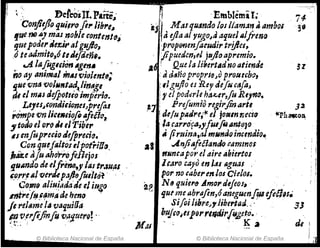 Defetos II. Parte,
Confiesso quiero ser libre,
que no ay mas noble contento,
que poder dezir al gusto,
ò te admito, ò te desdeño.
A la sugecion agena
no ay animal mas violento;
que vna voluntad, linage
de el mas despotico imperio.
Leyes, condiciones, presas
rompe vn licencioso afecto,
y todo el oro de el Tiber
es en su precio desprecio.
Con que saltos el potrillo
haze à su ahorro festejos
quando de el freno, y las trauas
corre al verde pasto suelto?
Como aliuiada de el iugo
entre su cama de heno
se relame la vaquilla
en ver se sin su vaquero!
Mas
Emblema I.
74
Mas quando los llaman à ambos
30
à esta al yugo, à aquel al freno
proponen sacudir tristes,
si pueden, el justo apremio.
26
Que la libertad no atiende
31
à daño proprio, ò prouecho,
el gusto es Rey de su casa,
y el poderle hazer, su Reyno.
27
Presumiò regir sin arte
32
de su padre, el jouen necio
la carroça, y fue su antojo
à si ruina, al mundo incendio.
Ansi afectando caminos
nunca por el aire abiertos
Icaro cayò en las aguas
por no caber en los Cielos.
29
No quiere Amor deseos,
que me abrasen, ò aneguen sus efectos;
Si soi libre, y libertad
33
busco, es por rendir sugeto.
K 2
de
© Biblioteca Nacional de España
© Biblioteca Nacional de España